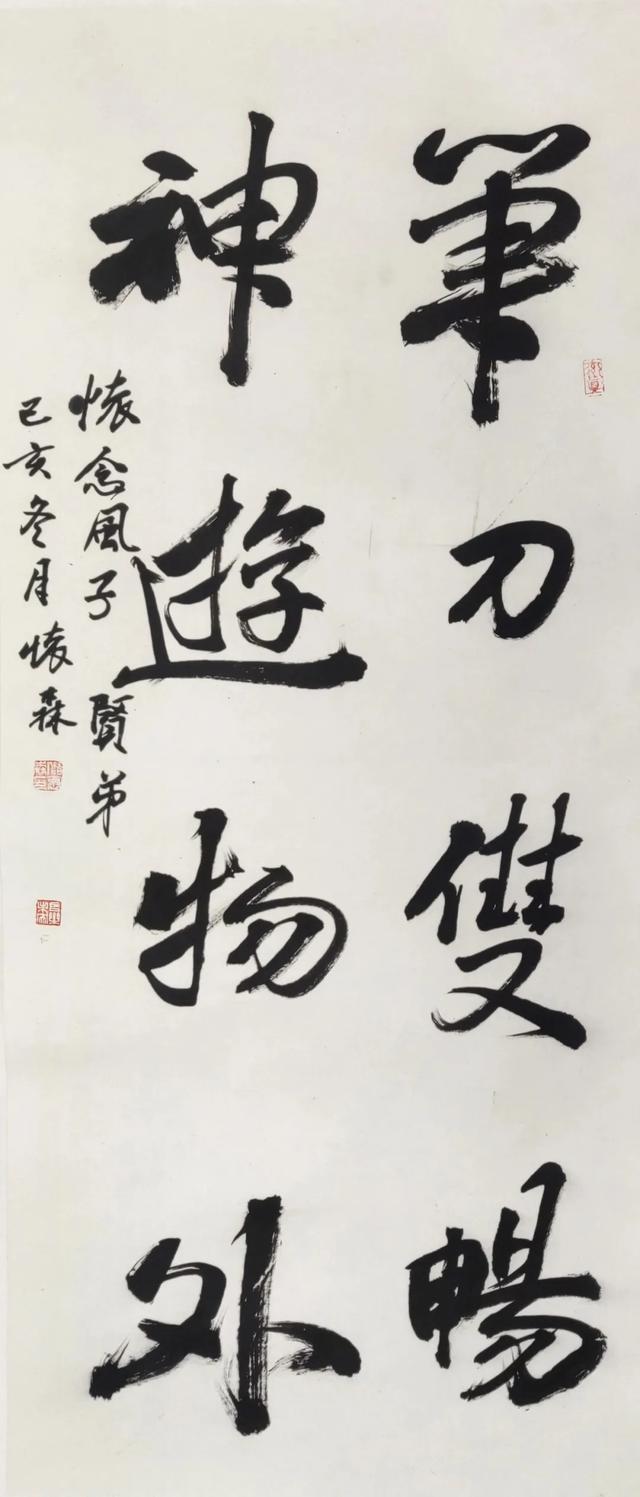 筆刀雙暢
神遊物外
懷念風子賢弟
己亥冬月懷森